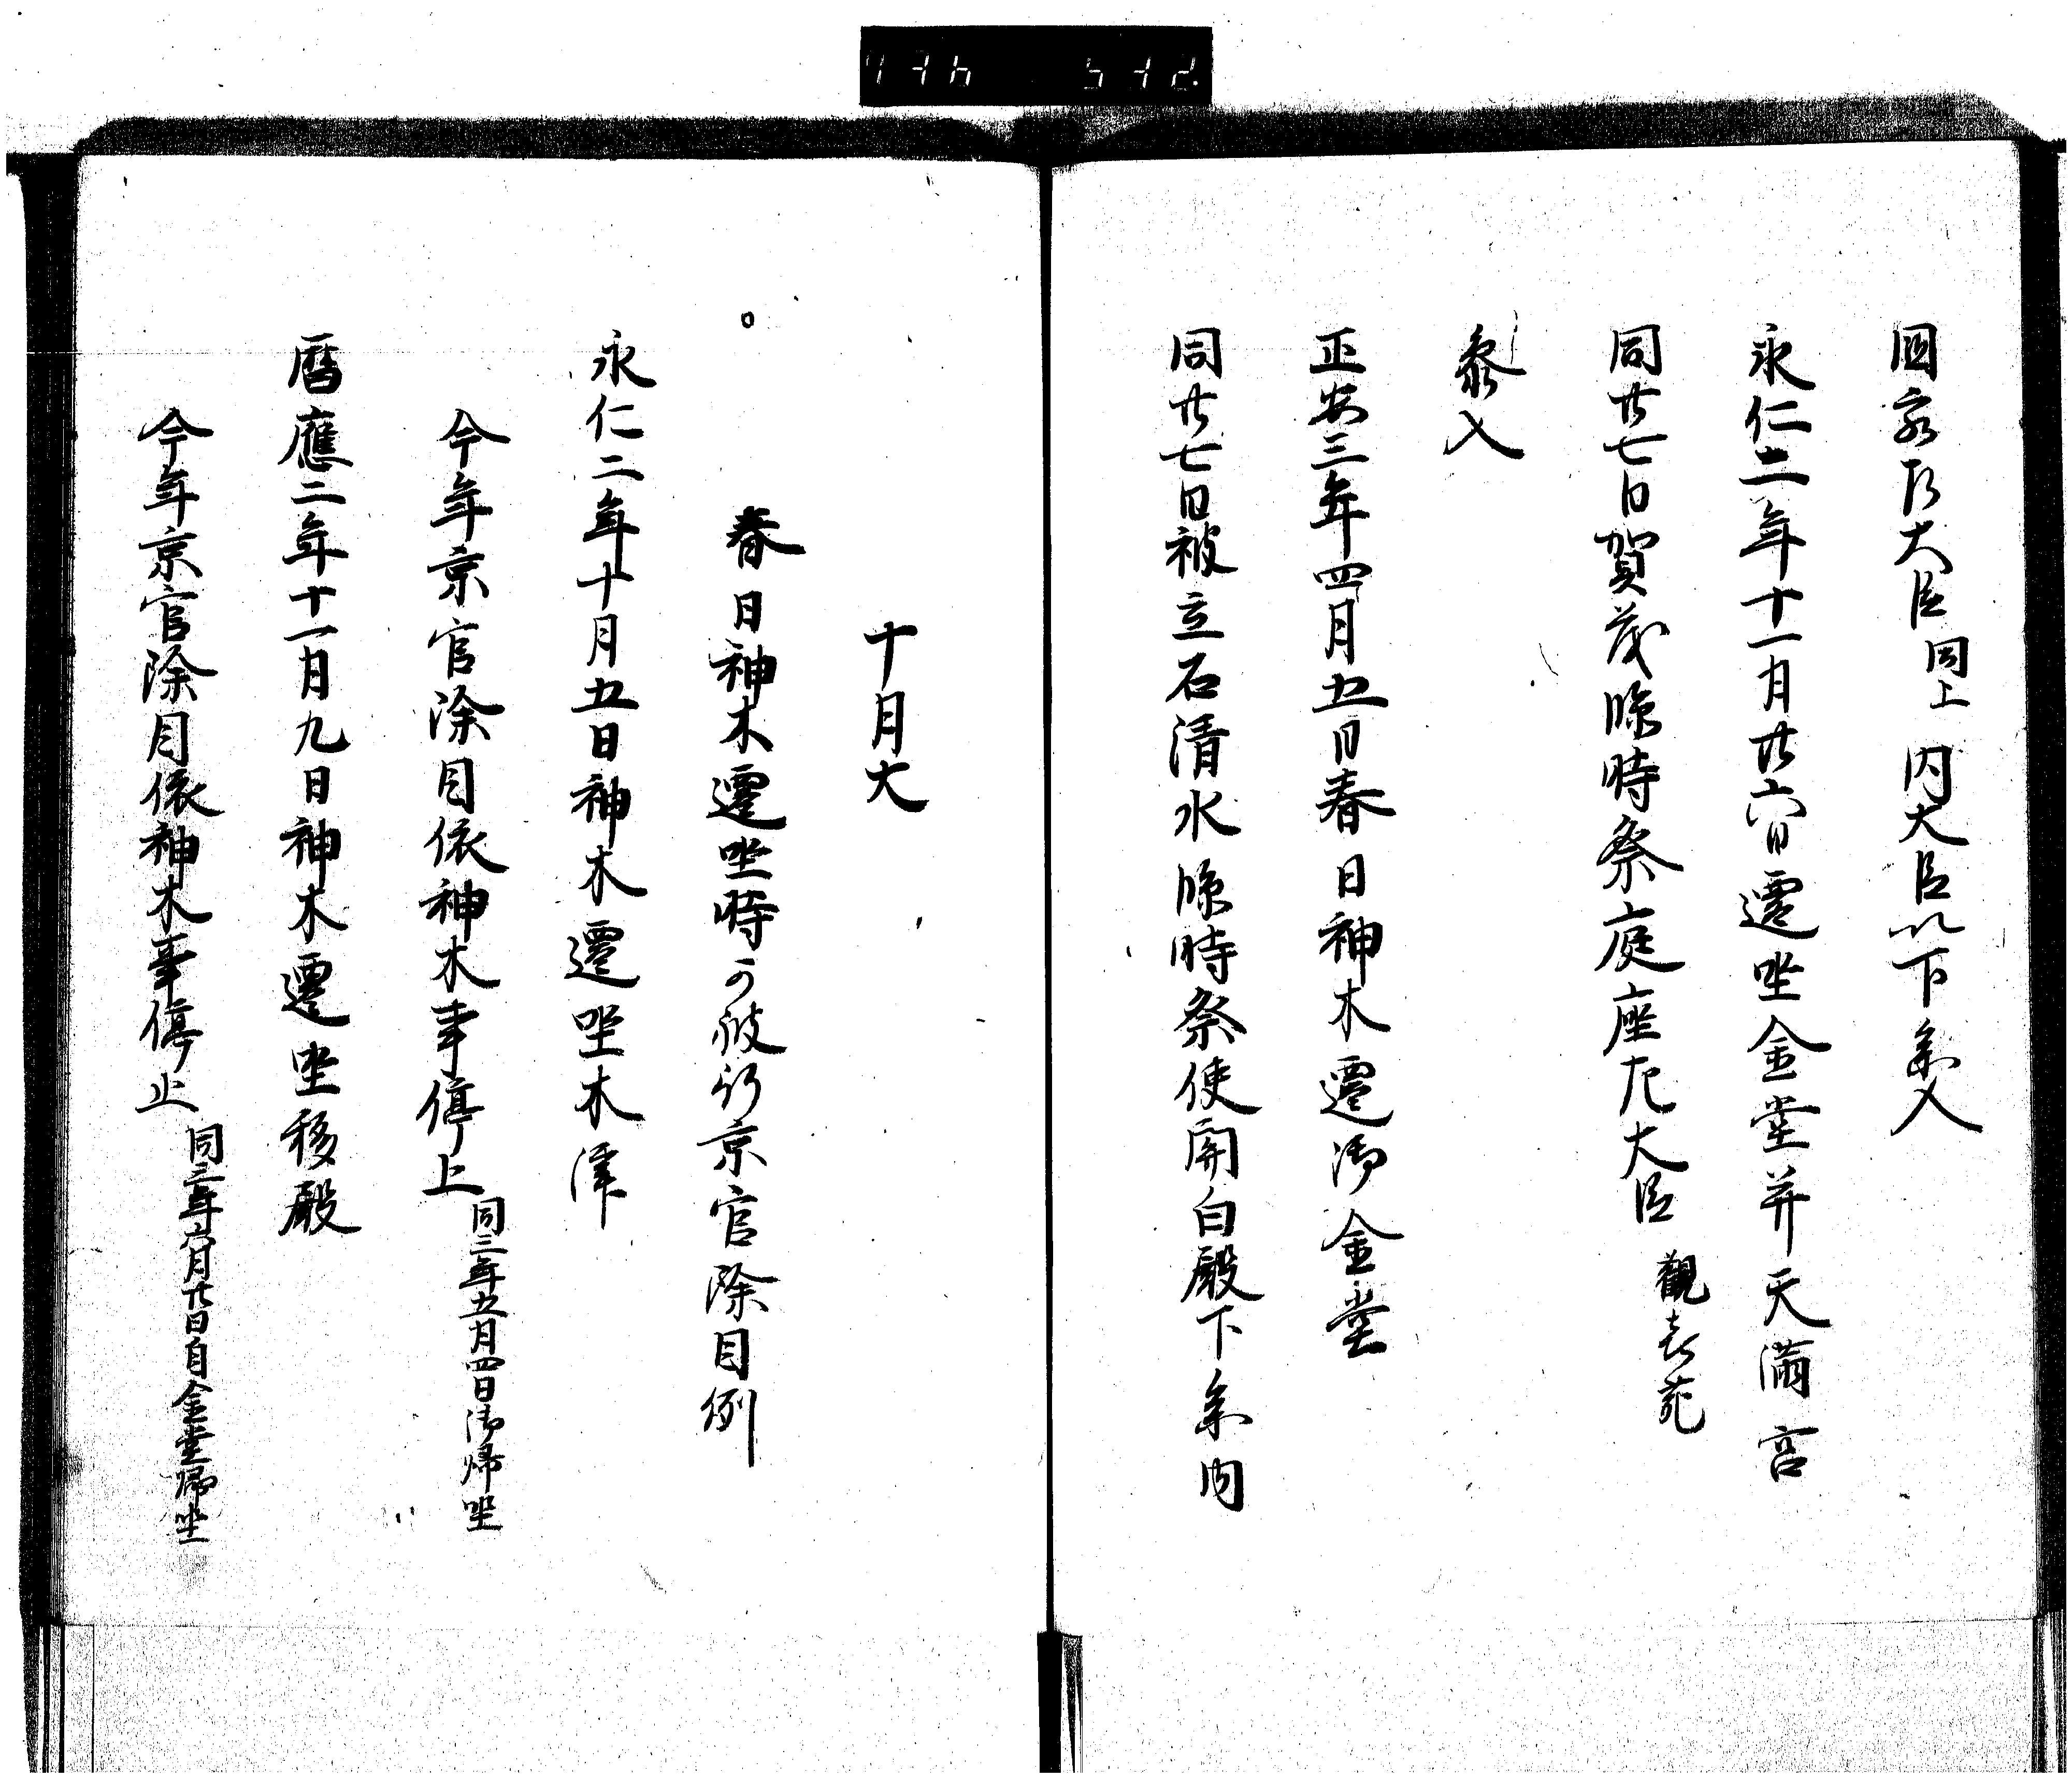 国家左大臣同上内大臣以下参入
永仁二年十一月廿六日遷坐金堂并天満宮
同廿七日賀茂臨時祭庭座左大臣観喜苑
参入
正安三年四月五日春日神木遷御金堂
同廿七日被立石清水臨時祭使関白殿下参内
十月大
春日神木遷坐時可被行京官除目例
永仁二年十月五日神木遷坐木津
今年京官除目依神木事停止同三年五月四日御帰坐
暦應二年十一月九日神木遷坐移殿
今年京官除目依神木事停止同三年六月廿日自金堂帰坐